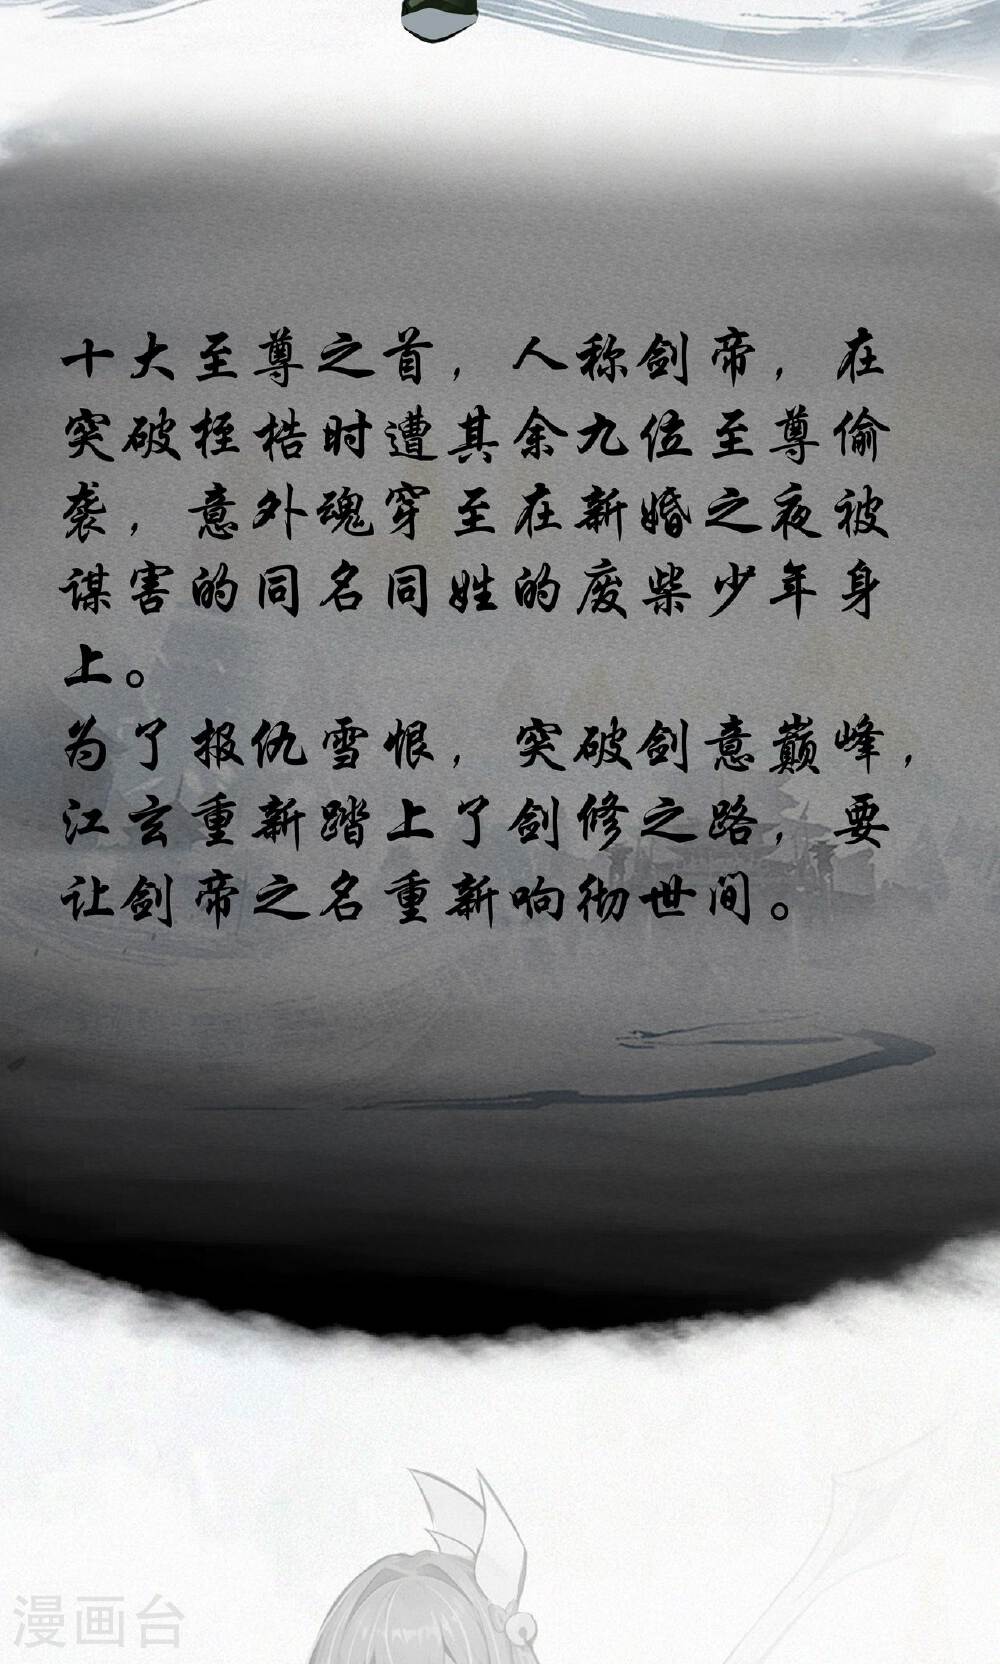 十大至尊之首，人称剑帝，在
突破桎梏时遭其余九位至尊偷
袭，意外魂穿至在新婚之夜被
谋害的同名同姓的废柴少年身
上。
为了报仇雪恨，突破剑意巅峰，
江玄重新踏上了剑修之路，要
让剑帝之名重新响彻世间。
漫画台